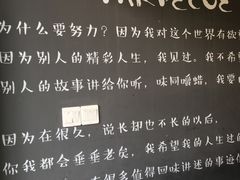 为什么要努力？因为我对这个世界有欲
因为别人的精彩人生，我见过。我不希
别人的故事讲给你听，味同嚼蜡，我要
因为在很久，说长却也不长的以后，
你我都会垂垂老矣，我希望我的人生过的
很多值得回味讲述的事迹